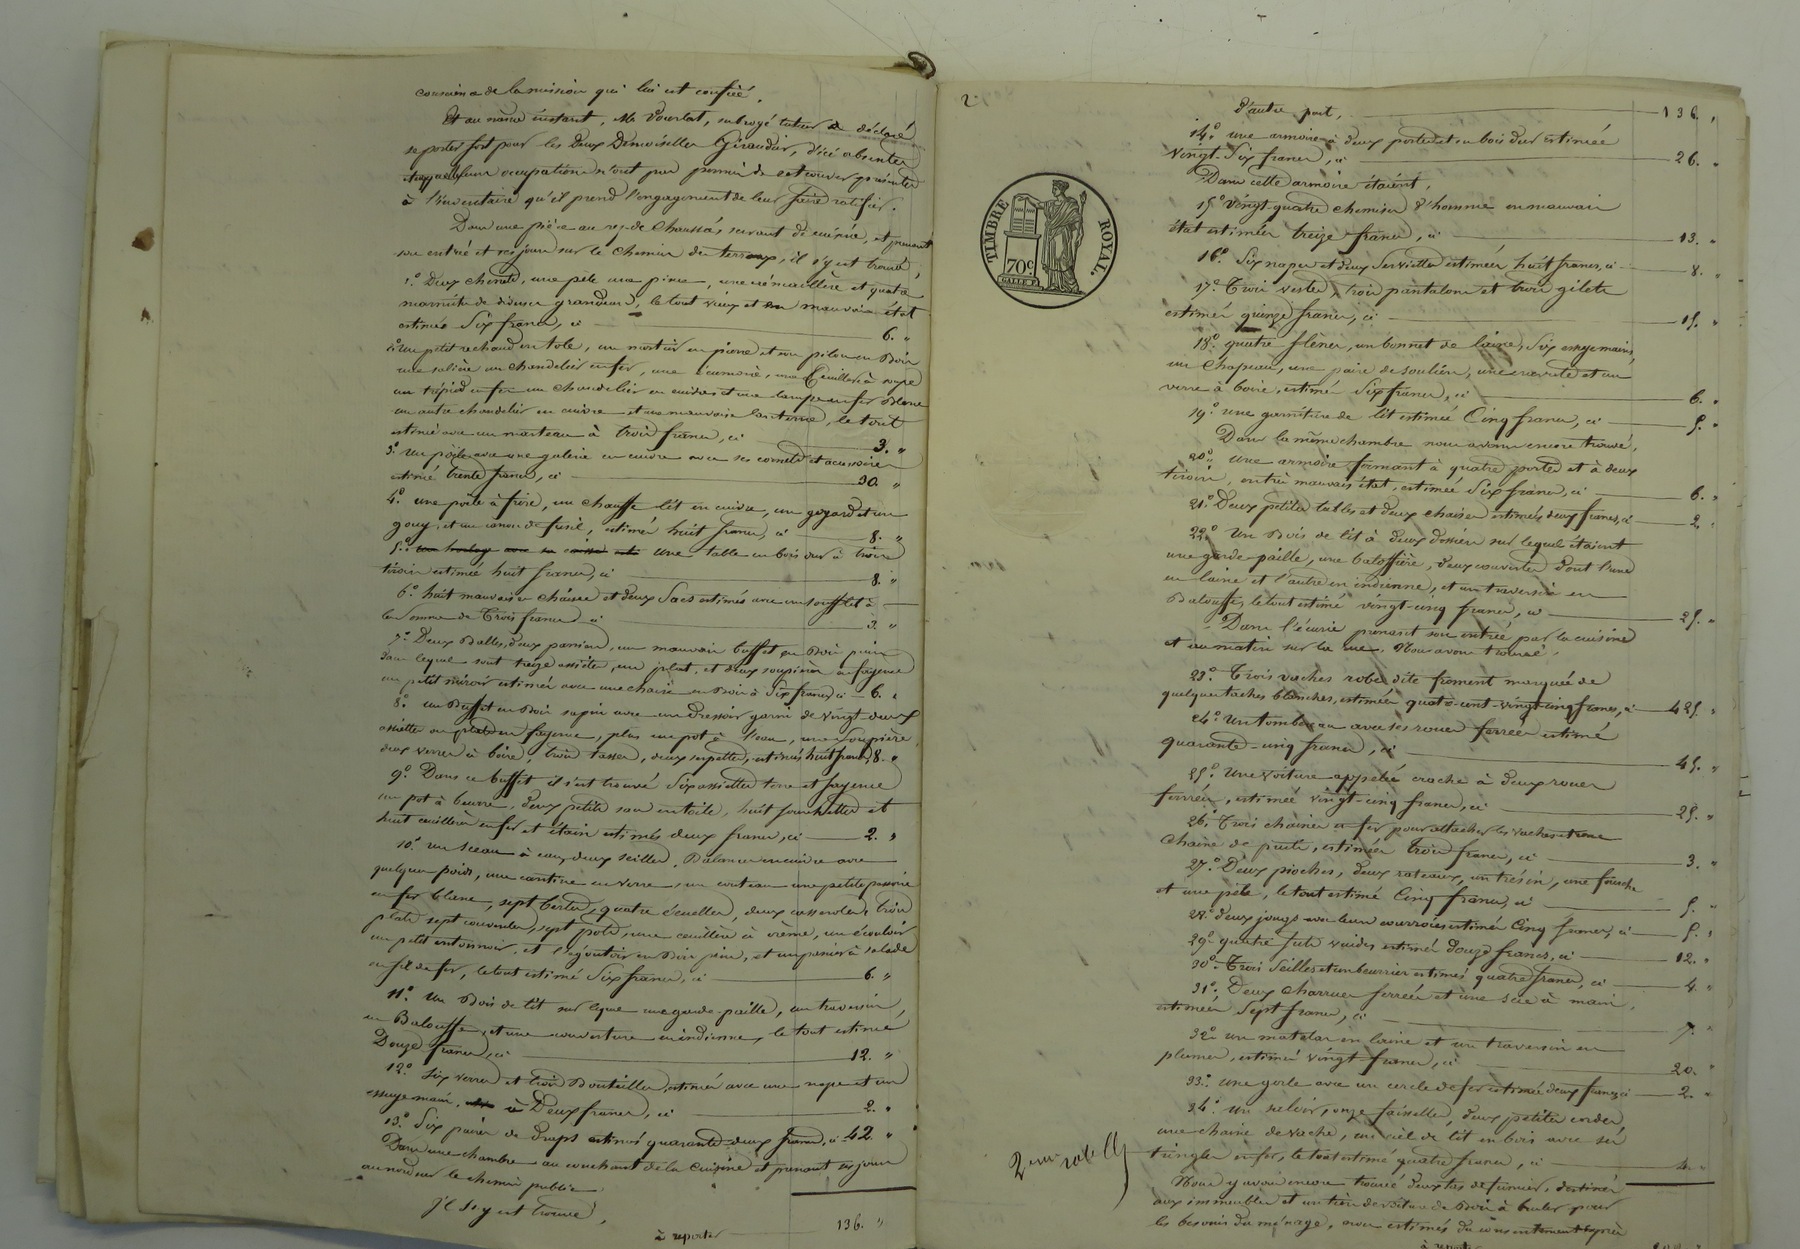 conscience de la mission qui lui est confiée.
Et au même instant, Me Vourlat, subrogé tuteur a déclaré
se porter fort pour les deux Demoiselles Giraudier, d'ici absentes
leurs occupations n'ont pas permis de se trouver présentes
à l'inventaire qu'il prend l'engagement de leur faire ratifier.
Dans une pièce au rez-de-chaussée servant de cuisine, et prenant
son entrée et ses jours sur le chemin des terreaux, il s'y est trouvé,
1.° Deux chenets, une pèle une pince, une crémaillère et quatre
marmites de diverses grandeurs, le tout vieux et en mauvais état
estimés Six francs, ci 6. "
2.° Un petit rechaud en tole, un mortier en pierre et son pilon en Bois
une salière un chandelier en fer, une écumoire, une Cuillère à soupe
un trépied en fer un chandelier en cuivre et une lampe en fer blanc
un autre chandelier en cuivre et une mauvaise lanterne, le tout
estimé avec un marteau à trois francs, ci 3. "
3.° Un poële avec une galerie en cuivre avec ses cornets et accessoires
estimé trente francs, ci 30 "
4.° une poële à frire, un chauffe lit en cuivre, un goyard et un
gouy, et un canon de fusil, estimé huit francs, ci 8. "
5.° une table en bois dur à trois
tiroirs estimée huit francs, ci 8. "
6.° huit mauvaises chaises et deux Sacs estimés avec un soufflet à
la somme de Trois francs ci 3. "
7.° Deux Balles, deux paniers, un mauvais buffet en Bois pin
dans lequel sont treize assiettes, un plat, et deux soupières en fayence
un petit miroir estimés avec une chaise en Bois à Six francs, ci 6. "
8.° un Buffet en Bois sapin avec un Dressoir garni de vingt-deux
assiettes ou plats en fayence, plus un pot à l'eau, une Soupière
deux verres à boire, trois tasses, deux serpettes, estimés huit francs 8. "
9.° Dans ce buffet il s'est trouvé Six assiettes terre et fayence
un pot à beurre, deux petits sacs en toile, huit fourchettes et
huit cuillères en fer et étain estimés deux francs, ci 2. "
10.° un Sceau à eau, deux seilles, Balance en cuivre avec
quelques poids, une cantine en verre, un couteau une petite passoire
en fer blanc, sept bertes, quatre écuelles, deux casseroles, trois
plats sept couvercles, sept pots, une cuillère à crème, un écouloir
un petit entonnoir, et l'égoutoir en Bois pin, et un panier à salade
en fil de fer, le tout estimé Six francs, ci 6. "
11.° Un Bois de lit sur lequel une garde-paille, un traversin,
en Balouffe, et une couverture en indienne, le tout estimé
Douze francs, ci 12. "
12.° Six verres et trois Bouteilles, estimés avec une nape et un
essuye main, à Deux francs, ci 2. "
13.° Six paires de Draps estimés quarante-deux francs, ci 42 "
Dans une chambre au couchant de la cuisine et prenant ses jours
au nord sur le chemin public
Il s'y est trouvé,
à reporter 136. "
2
TIMBRE ROYAL.
70c
D'autre part, 136. "
14.° une armoire à deux portes et en bois dur estimée
vingt-Six francs, ci 26. "
Dans cette armoire étaient,
15.° Vingt quatre chemises d'homme en mauvais
état estimées treize francs, ci 13. "
16.° Six napes et deux Serviettes estimées huit francs, ci 8. "
17.° Trois vestes, trois pantalons et trois gilets
estimés quinze francs, ci 15. "
18.° quatre un bonnet de laine, Six essuyemains,
un Chapeau, une paire de souliers, une cravate et un
verre à boire, estimés Six francs, ci 6. "
19.° une garniture de lit estimée Cinq francs, ci 5. "
Dans la même chambre nous avons encore trouvé,
20.° Une armoire fermant à quatre portes et à deux
tiroirs, en très mauvais état, estimée Six francs, ci 6. "
21.° Deux petites tables et deux chaises estimées deux francs, ci 2. "
22.° Un Bois de lit à deux dossiers sur lequel étaient
une garde-paille, une baloffière, deux couvertes dont l'une
en laine et l'autre en indienne, et un traversin en
Balouffe, le tout estimé vingt-cinq francs, ci 25. "
Dans l'écurie prenant son entrée par la cuisine
et au matin sur la rue, Nous avons trouvé,
23.° Trois vaches robe dite froment marquées de
quelques taches blanches, estimées quatre-cent-vingt-cinq francs, ci 425. "
24.° Un tombereau avec ses roues ferrées estimé
quarante-cinq francs, ci 45. "
25.° Une voiture appelée crache à deux roues
ferrées, estimée vingt-cinq francs, ci 25. "
26.° Trois chaînes en fer pour attacher les vaches et une
chaîne de puits, estimées Trois francs, ci 3. "
27.° Deux pioches, deux rateaux, un trésin, une fourche
et une pèle, le tout estimé Cinq francs, ci 5. "
28.° deux jougs avec leurs courroies estimés Cinq francs, ci 5. "
29.° quatre futs vuides estimés douze francs, ci 12. "
30.° Trois Seilles et un beurrier estimés quatre francs, ci 4. "
31.° Deux charrues ferrées et une scie à main,
estimées Sept francs, ci 7. "
32.° un matelas en laine et un traversin en
plumes, estimés vingt francs, ci 20. "
33.° une gerle avec un cercle de fer estimée deux francs, ci 2. "
34.° Un saloir, onze faisselles, deux petites cordes,
une chaîne de vache, un ciel de lit en bois avec ses
tringles en fer, le tout estimé quatre francs, ci 4. "
Nous y avons encore trouvé deux tas de fumier, destinés
aux immeubles et un tiers de voiture de Bois à bruler pour
les besoins du ménage, non estimés du consentement exprès
à reporter
2eme rôle